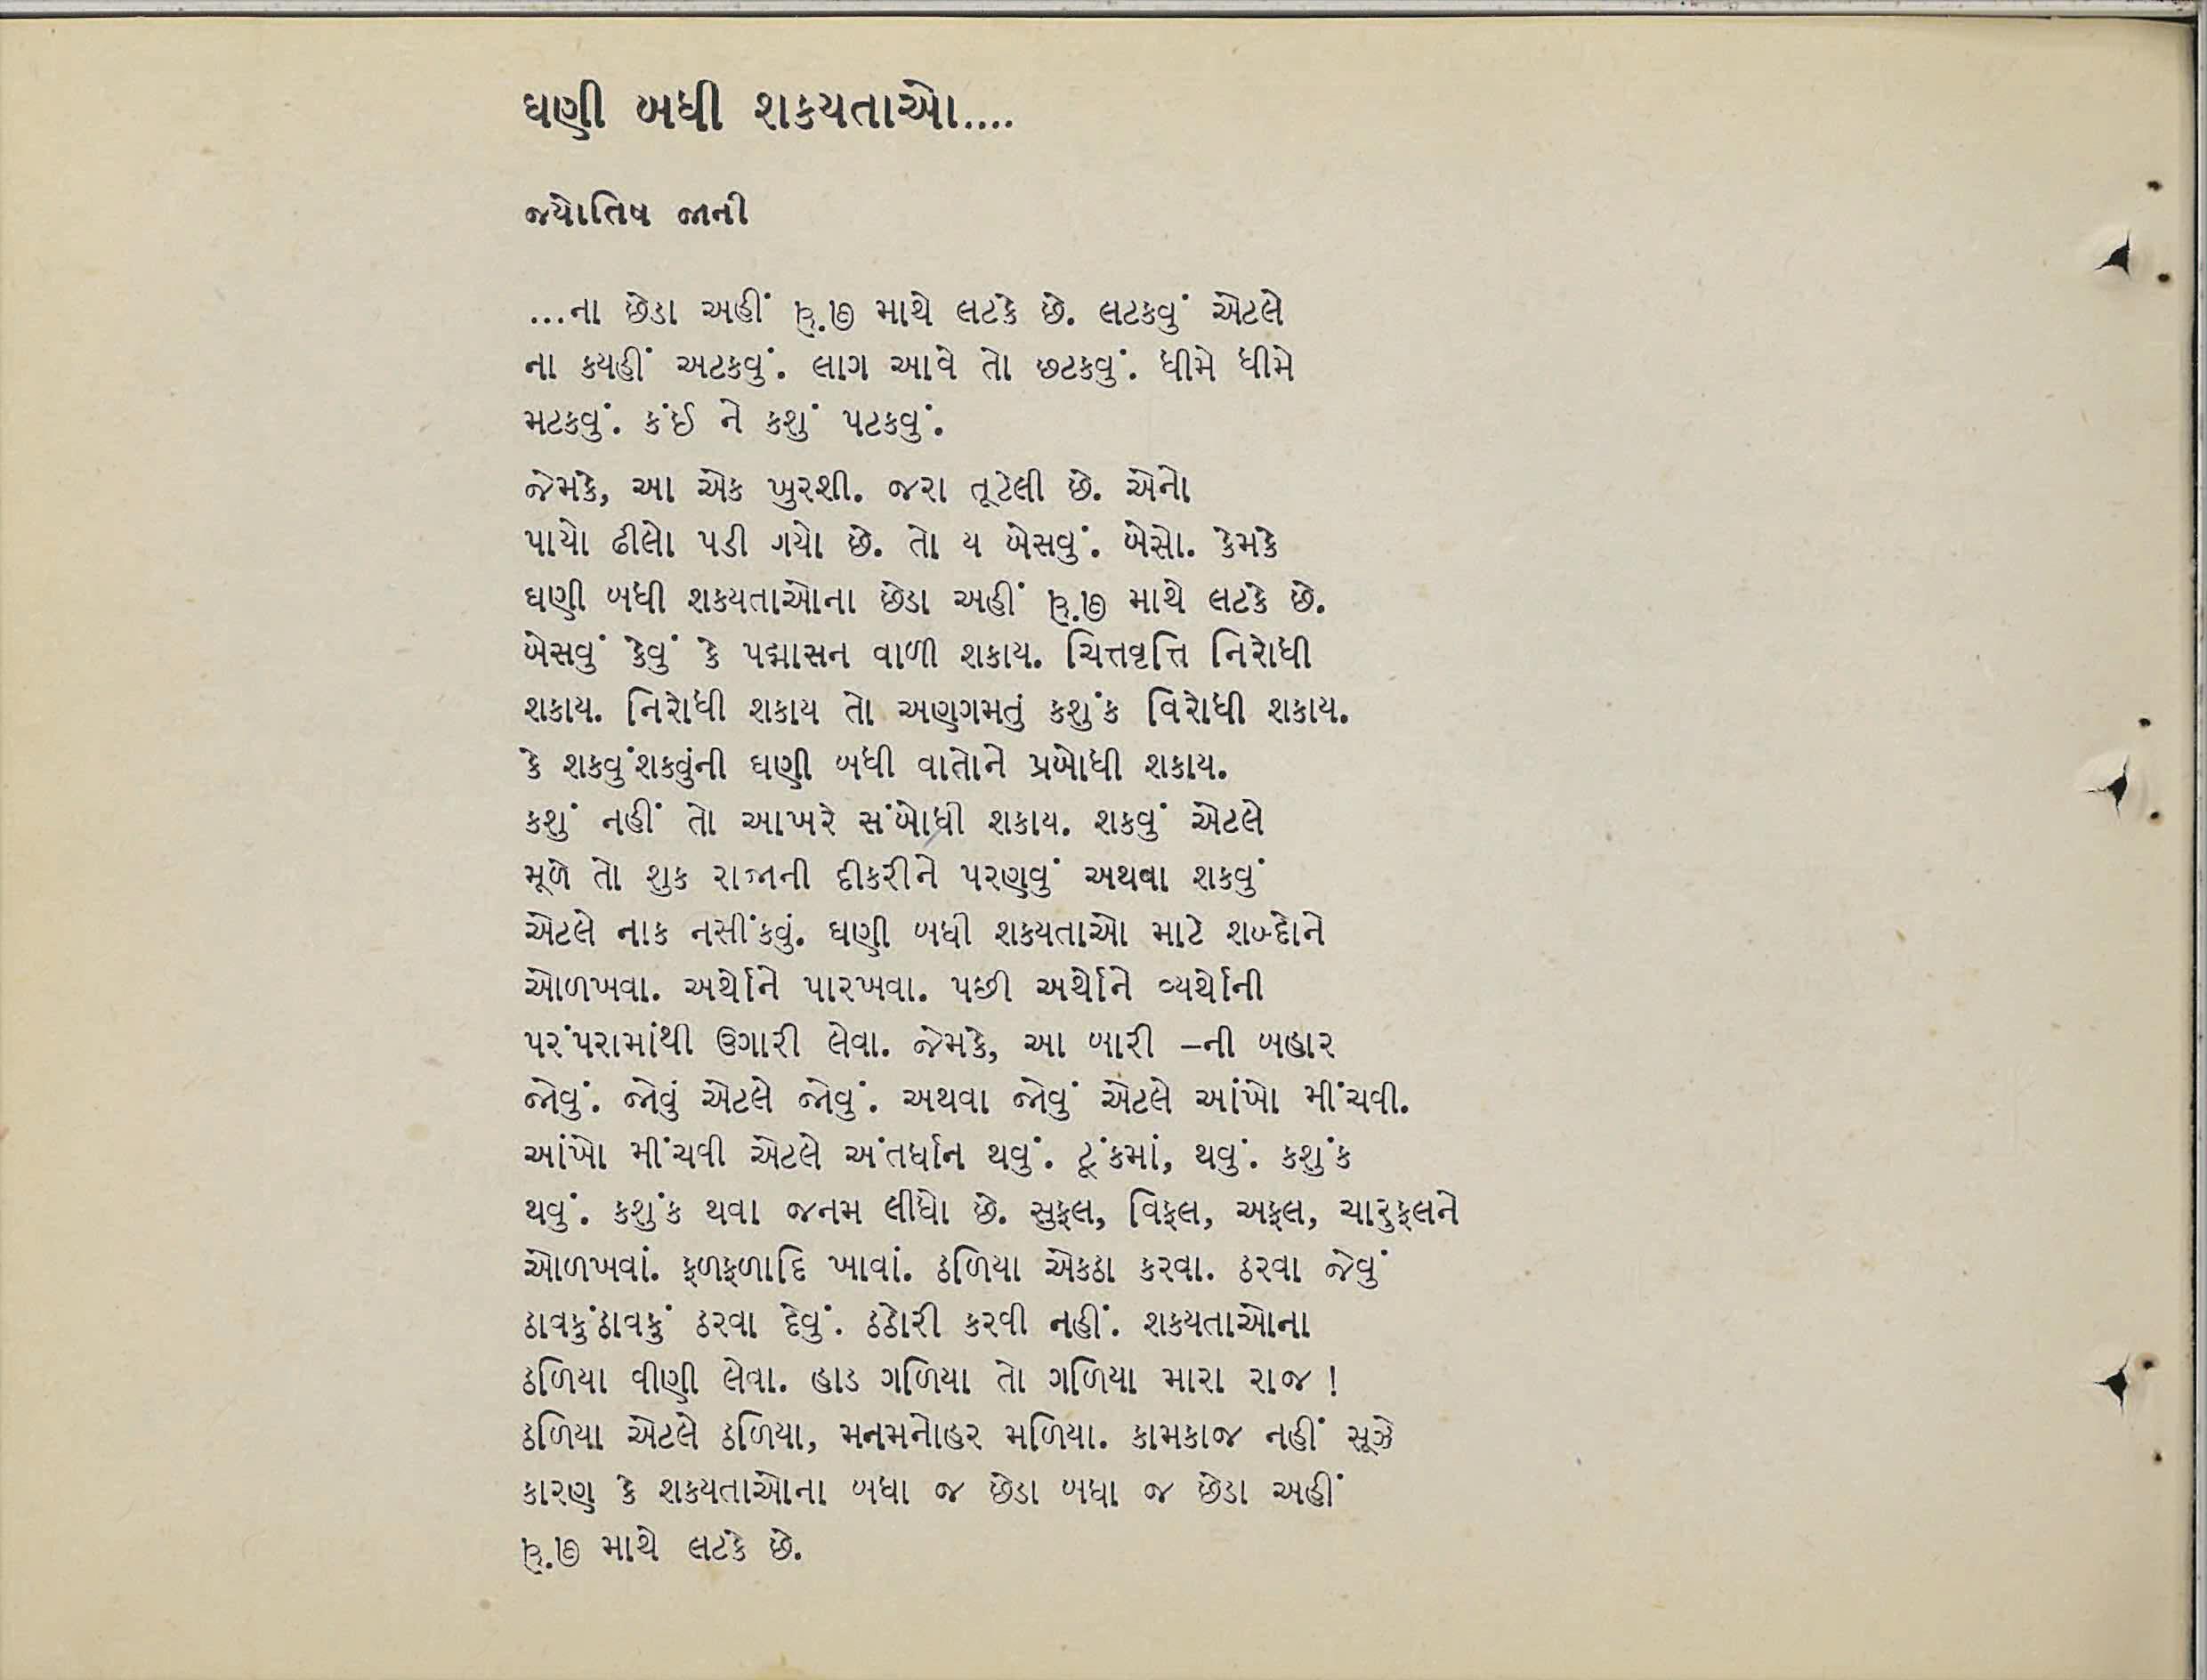 ઘણી બધી શકયતાઓ....
જ્યોતિષ જાની
...ના છેડા અહીં માથે લટકે છે. લટકવું એટલે
ના કયહીં અટકવું. લાગ આવે તો છટકવું. ધીમે ધીમે
મટકવું. કંઈ ને કશું પટકવું.
જેમકે, આ એક ખુરશી. જરા તૂટેલી છે. એનો
પાયો ઢીલો પડી ગયો છે. તો ય બેસવું. બેસો. કેમકે
ઘણી બધી શકયતાઓના છેડા અહીં માથે લટકે છે.
બેસવું કેવું કે પદ્માસન વાળી શકાય. ચિત્તવૃત્તિ નિરોધી
શકાય. નિરોધી શકાય તો અણગમતું કશુંક વિરોધી શકાય.
કે શકવુંશકવુંની ઘણી બધી વાતોને પ્રબોધી શકાય.
કશું નહીં તો આખરે સંબોધી શકાય. શકવું એટલે
મૂળે તો શુક રાજાની દીકરીને પરણવું અથવા શકવું
એટલે નાક નસીંકવું. ઘણી બધી શકયતાઓ માટે શબ્દોને
ઓળખવા. અર્થોને પારખવા. પછી અર્થોને વ્યર્થોની
પરંપરામાંથી ઉગારી લેવા. જેમકે, આ બારી –ની બહાર
જોવું. જોવું એટલે જોવું. અથવા જોવું એટલે આંખો મીંચવી.
આંખો મીંચવી એટલે અંતર્ધાન થવું. ટૂંકમાં, થવું. કશુંક
થવું. કશુંક થવા જનમ લીધો છે. સુફલ, વિફલ, અફલ, ચારુફલને
ઓળખવાં. ફળફળાદિ ખાવાં. ઠળિયા એકઠા કરવા. ઠરવા જેવું
ઠાવકુંઠાવકું ઠરવા દેવું. ઠઠોરી કરવી નહીં. શકયતાઓના
ઠળિયા વીણી લેવા. હાડ ગળિયા તો ગળિયા મારા રાજ !
ઠળિયા એટલે ઠળિયા, મનમનોહર મળિયા. કામકાજ નહીં સૂઝે
કારણ કે શકયતાઓના બધા જ છેડા બધા જ છેડા અહીં
માથે લટકે છે.